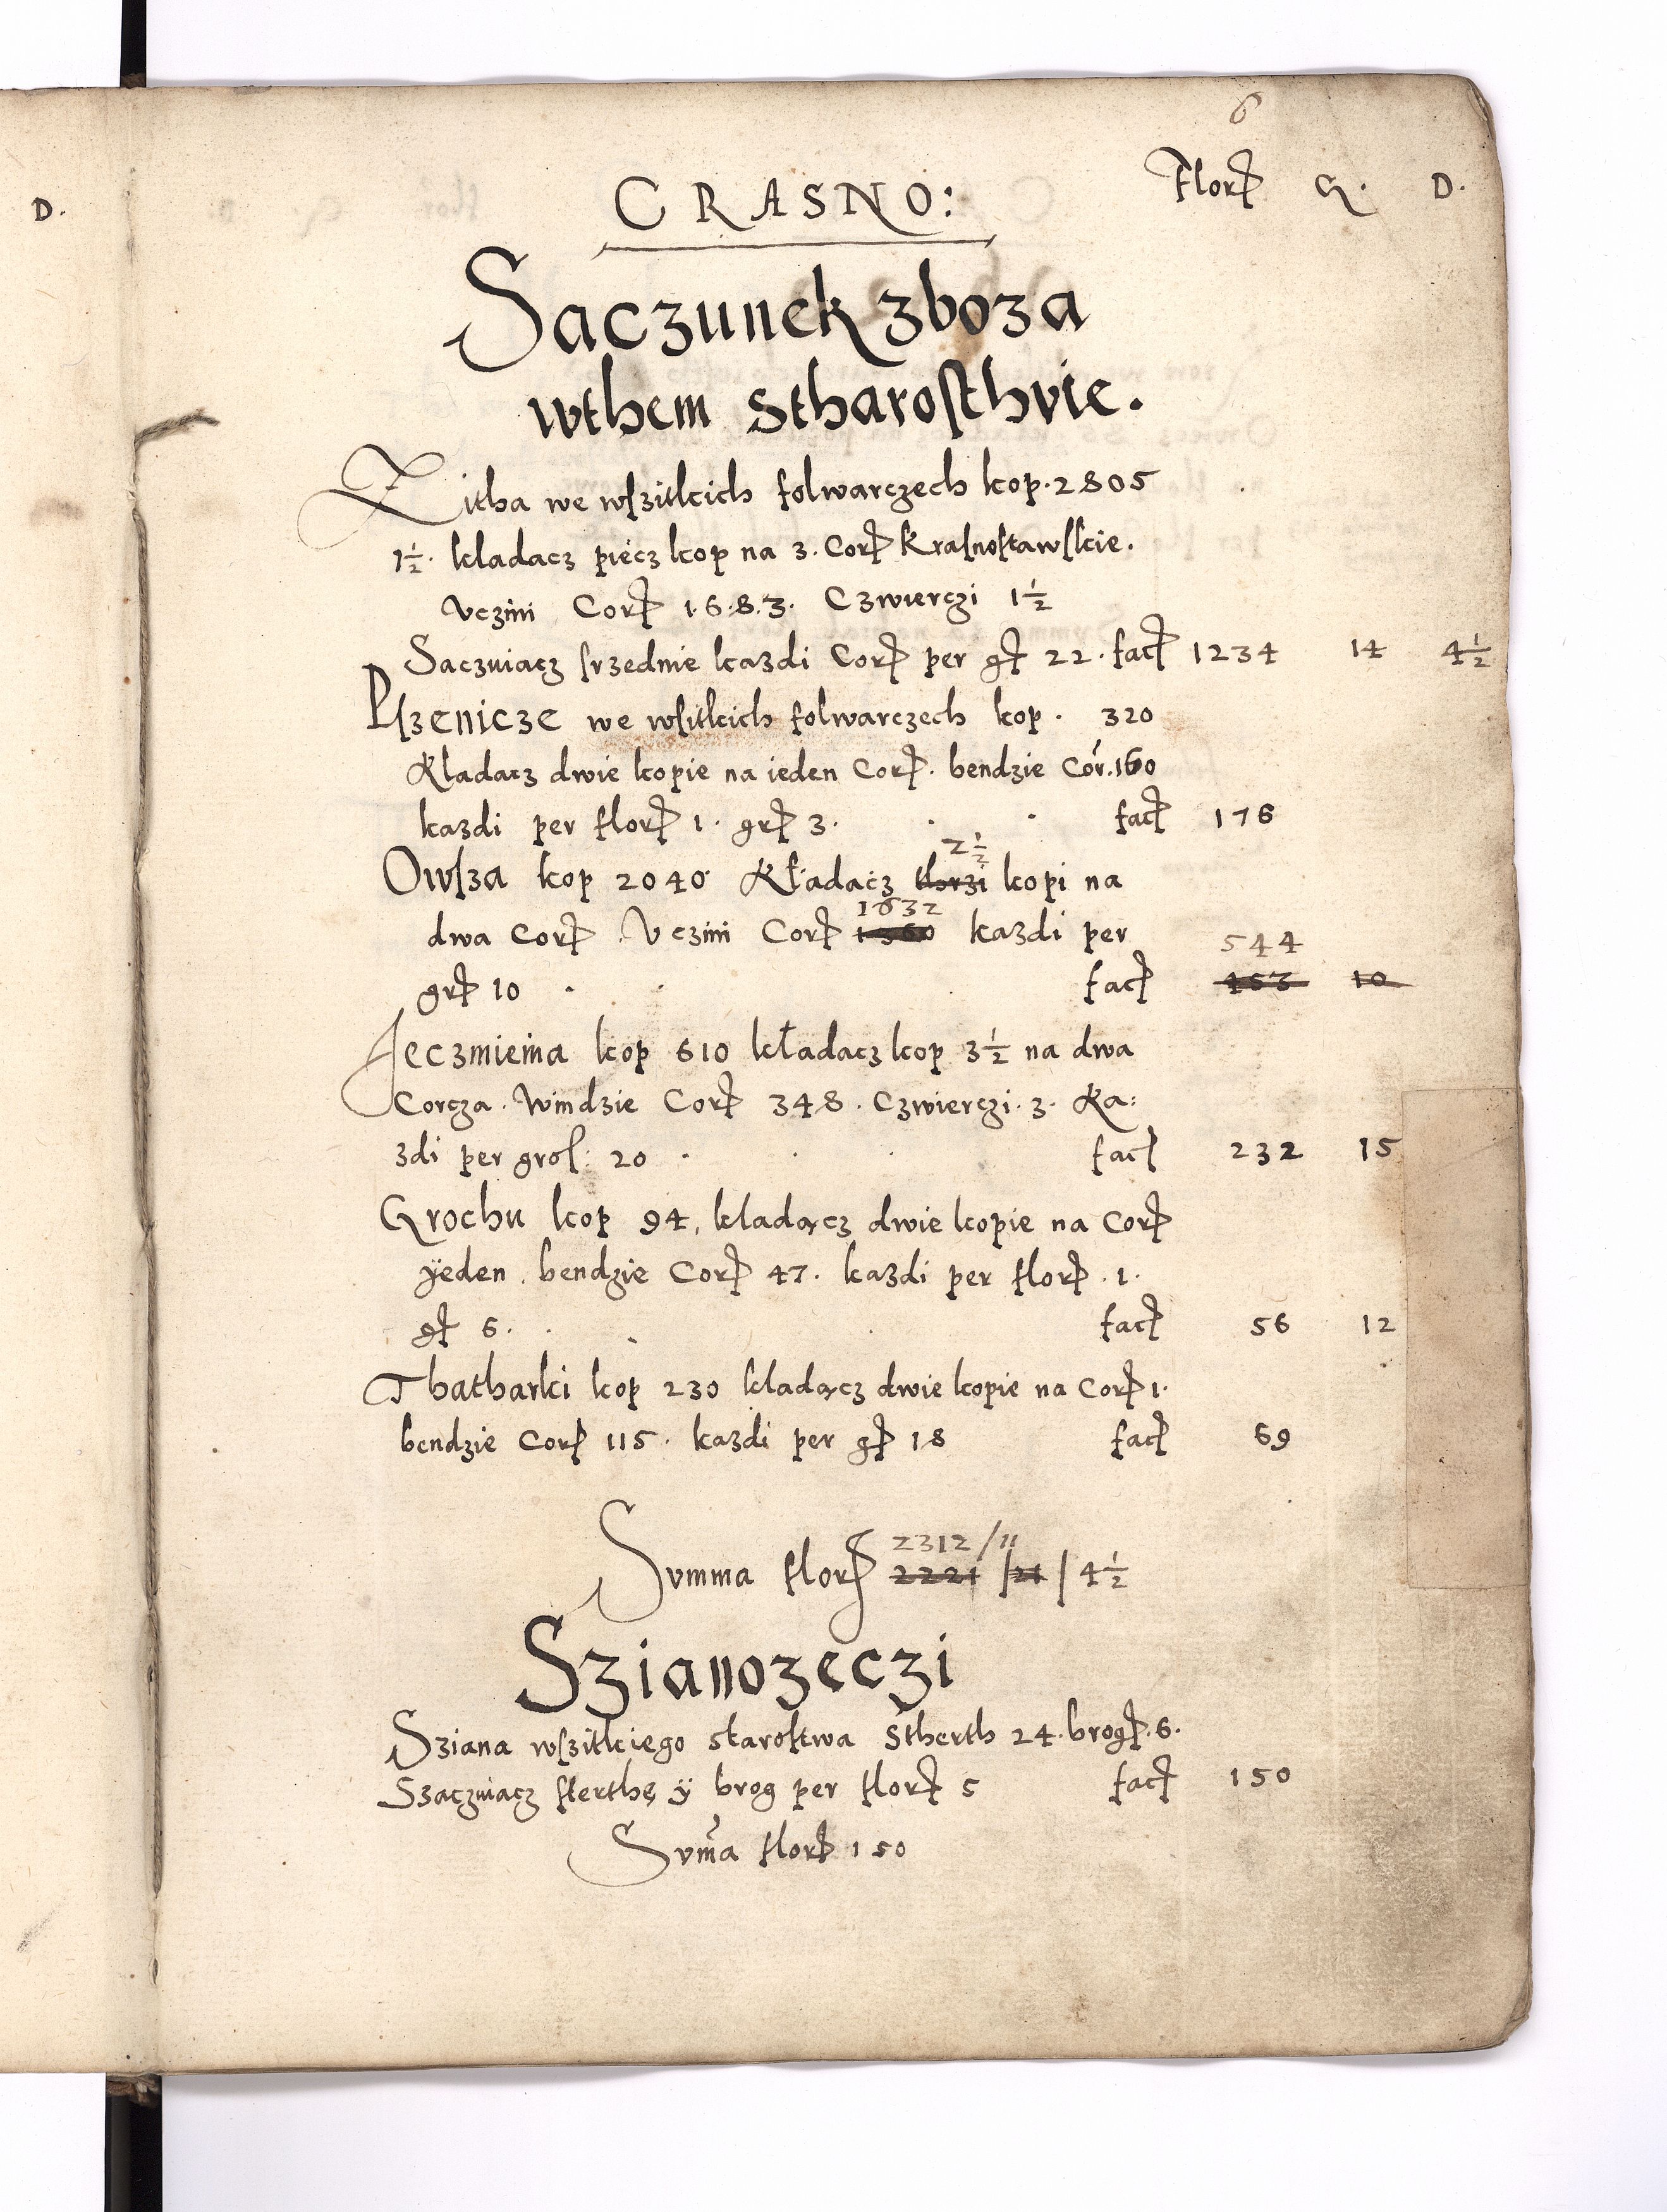 6
D.
CRASNO: Flor G. D.
Saczunek zboza
wthem stharosthvie.
Zitha we wszitkich folwarczech kop. 2805
1½. kladacz piecz kop na 3. Cor Krasnostawskie.
Vczini Cor 1683. Czwierczi 1½
Saczuiacz srzednie kazdi Cor per g 22. fac 1234 14 4½
Pszenicze we wsitkich folwarczech kop. 320
Kladacz dwie kopie na ieden Cor. bendzie Cor. 160
kazdi per flor 1. gr 3. fac 176
2½
Owsza kop 2040 Kładacz thrzi kopi na
1632
dwa Cor Vczini Cor 1360 kazdi per 544
gr 10 fac 453 10
Jeczmienia kop 610 kładacz kop 3½ na dwa
Corcza. Windzie Cor 348. Czwierczi. 3. Ka:
zdi per gros: 20 fac 232 15
Grochu kop 94, kladącz dwie kopie na Cor
ÿeden. bendzie Cor 47. kazdi per flor. 1.
g 6. fac 56 12
Thatharki kop 230 kladącz dwie kopie na Cor 1.
bendzie Cor 115. kazdi per g 18 fac 69
2312 / 11
Svmma flor 2221 / 21 / 4½
Szianozeczi
Sziana wszitkiego starostwa Stherth 24. brog. 6.
Szaczuiacz sterthę ÿ brog per flor 5 fac 150
Svma flor 150